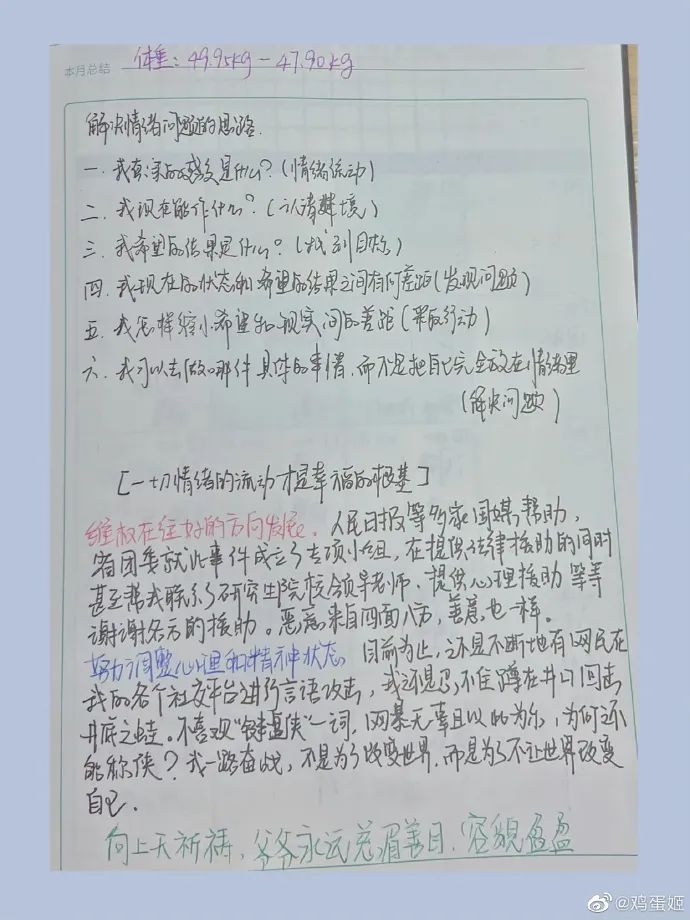 本月总结 体重：49.95kg-47.90kg
解决情绪问题的思路.
一.我真实的感受是什么?(情绪流动)
二.我现在能作什么?(认清环境)
三.我希望的结果是什么?(找到目标)
四.我现在的状态和希望的结果之间有何差距(发现问题)
五.我怎样缩小希望和现实间的差距(采取行动)
六.我可以去做哪件具体的事情,而不是把自己完全放在情绪里
(解决问题)
[一切情绪的流动才是幸福的根基]
维权在往好的方向发展. 人民日报等多家国媒帮助,
省团委就此事件成立了专项小组,在提供法律援助的同时
甚至帮我联系了研究生院校领导老师,提供心理援助等等
谢谢各方的援助。恶意来自四面八方,善意也一样。
努力调整心理和精神状态. 目前为止,还是不断地有网民在
我的各个社交平台进行言语攻击,我还是忍不住蹲在井口回击
井底之蛙。不喜欢“键盘侠”一词,网暴无辜且以此为乐,为何还
能称侠?我一路奋战,不是为了改变世界,而是为了不让世界改变
自己.
向上天祈祷,爷爷永远慈眉善目,容貌盈盈
@鸡蛋姬